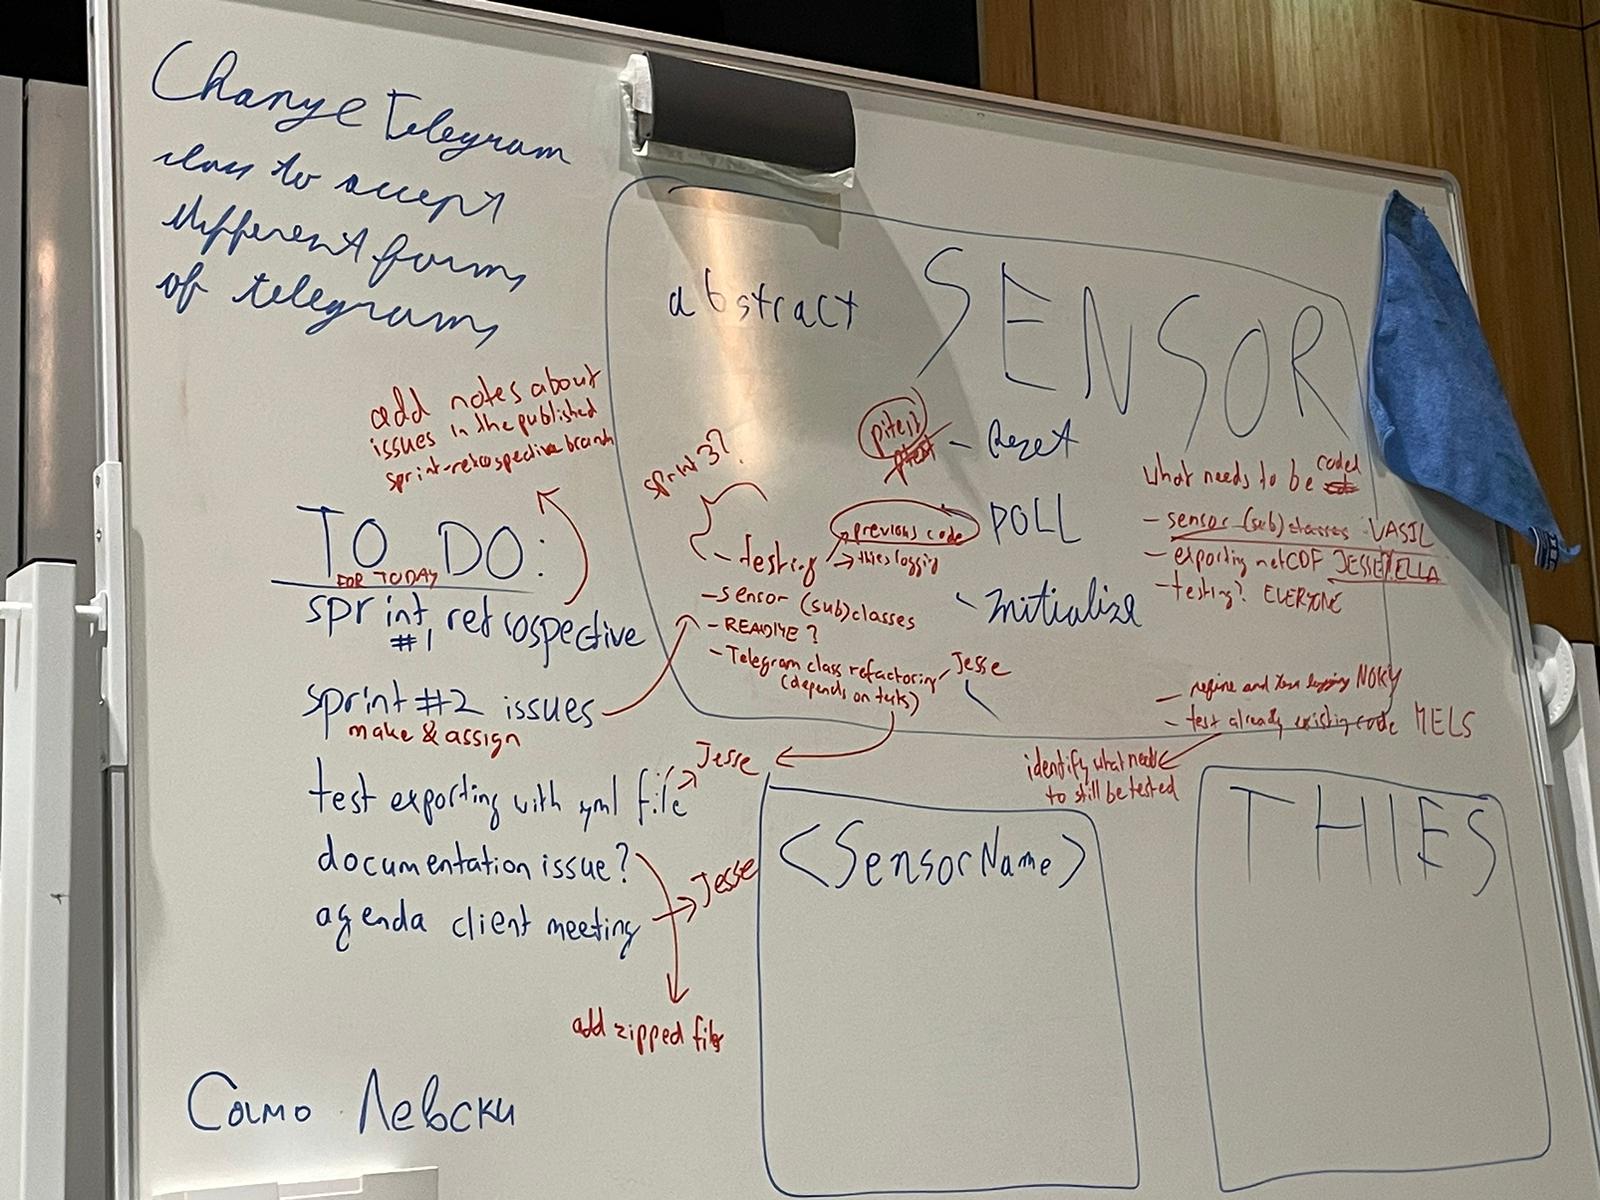 Change Telegram
class to accept
different forms
of telegrams
add notes about
issues in the published
sprint-retrospective branch
TO DO:
FOR TODAY
sprint retrospective
#1
sprint #2 issues
make & assign
test exporting with yml file
Jesse
documentation issue?
agenda client meeting
Jesse
add zipped files
Само Левски
abstract SENSOR
pitest
- Reset
POLL
- Initialize
sprint 3?
- testing
previous code
→ thies logging
- sensor (sub)classes
- README?
- Telegram class refactoring
(depends on tests)
Jesse
what needs to be coded
- sensor (sub)classes VASIL
- exporting netCDF JESSE/ELLA
- testing? EVERYONE
- refine and test logging NOKY
- test already existing code MELS
identify what needs
to still be tested
<SensorName>
THIES